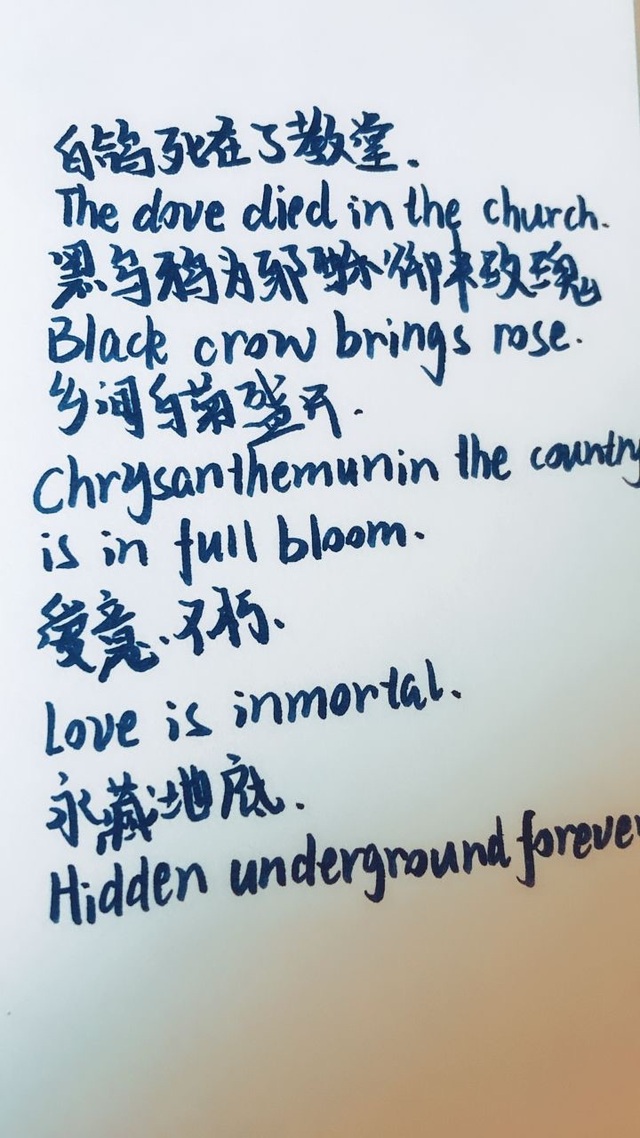 白鸽死在了教堂.
The dove died in the church.
黑乌鸦为邪 衔来玫瑰
Black crow brings rose.
乡间白菊盛开.
Chrysanthemunin the country
is in full bloom.
爱意.不朽.
Love is inmortal.
永藏地底.
Hidden underground forever